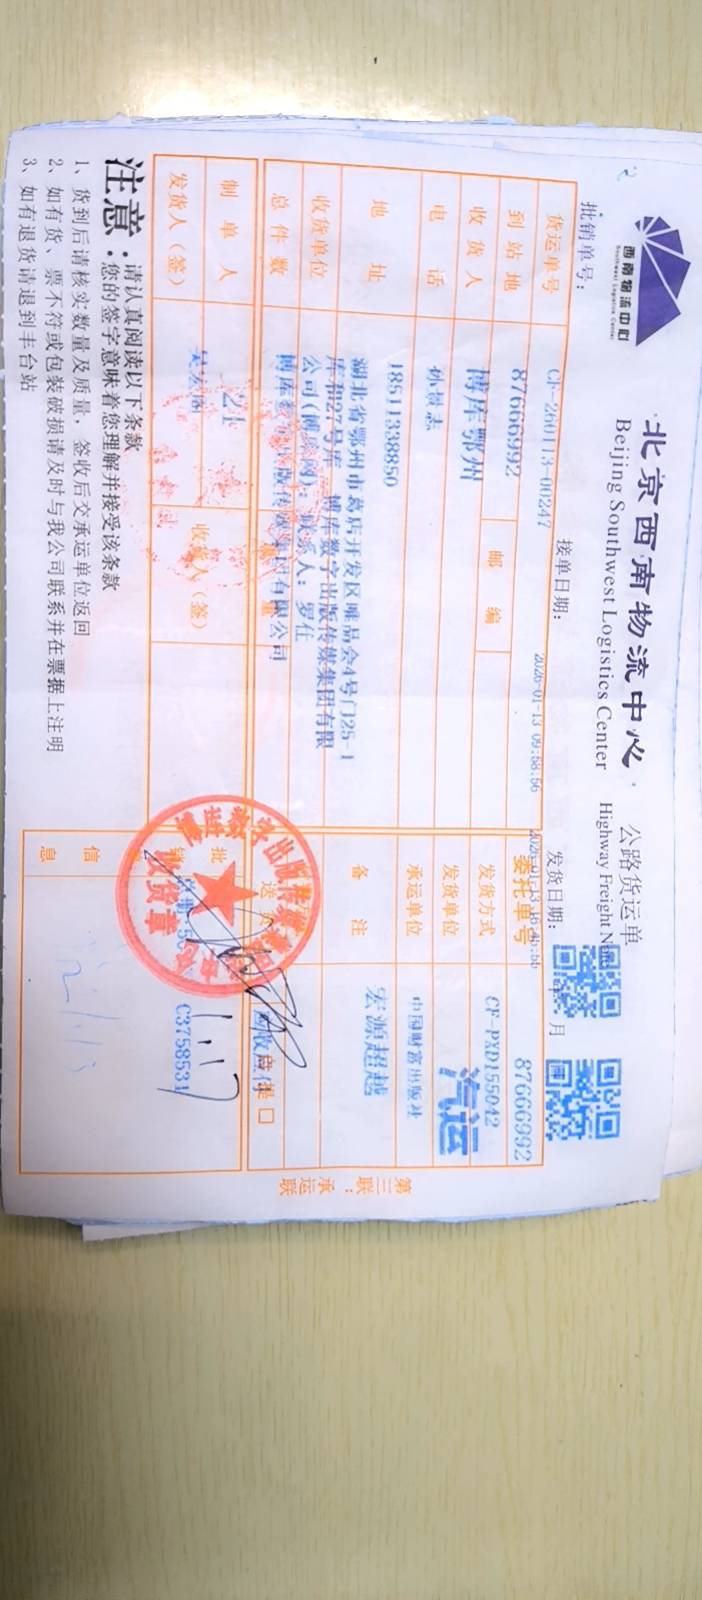 西南物流中心
Southwest Logistics Center
北京西南物流中心
Beijing Southwest Logistics Center
公路货运单
Highway Freight
批销单号：
接单日期：
2026-01-13 09:58:56
发货日期：
月
货运单号
CF-260113-00247
委托单号
87666992
到站地
87666992
邮编
发货方式
CF-PXD155042
收货人
博库鄂州
发货单位
汽运
电话
孙哲志
承运单位
中国财富出版社
18511338850
地址
湖北省鄂州市葛店开发区唯品会4号门25-1
库和27号库 博库数字出版传媒集团有限
备注
宏源超越
收货单位
总件数
制单人
21
发货人（签）
收货人（签）
收货章
C3758531
信息
第三联：承运联
注意：
请认真阅读以下条款
您的签字意味着您理解并接受该条款
1、货到后请核实数量及质量，签收后交承运单位返回
2、如有货、票不符或包装破损请及时与我公司联系并在票据上注明
3、如有退货请退到丰台站